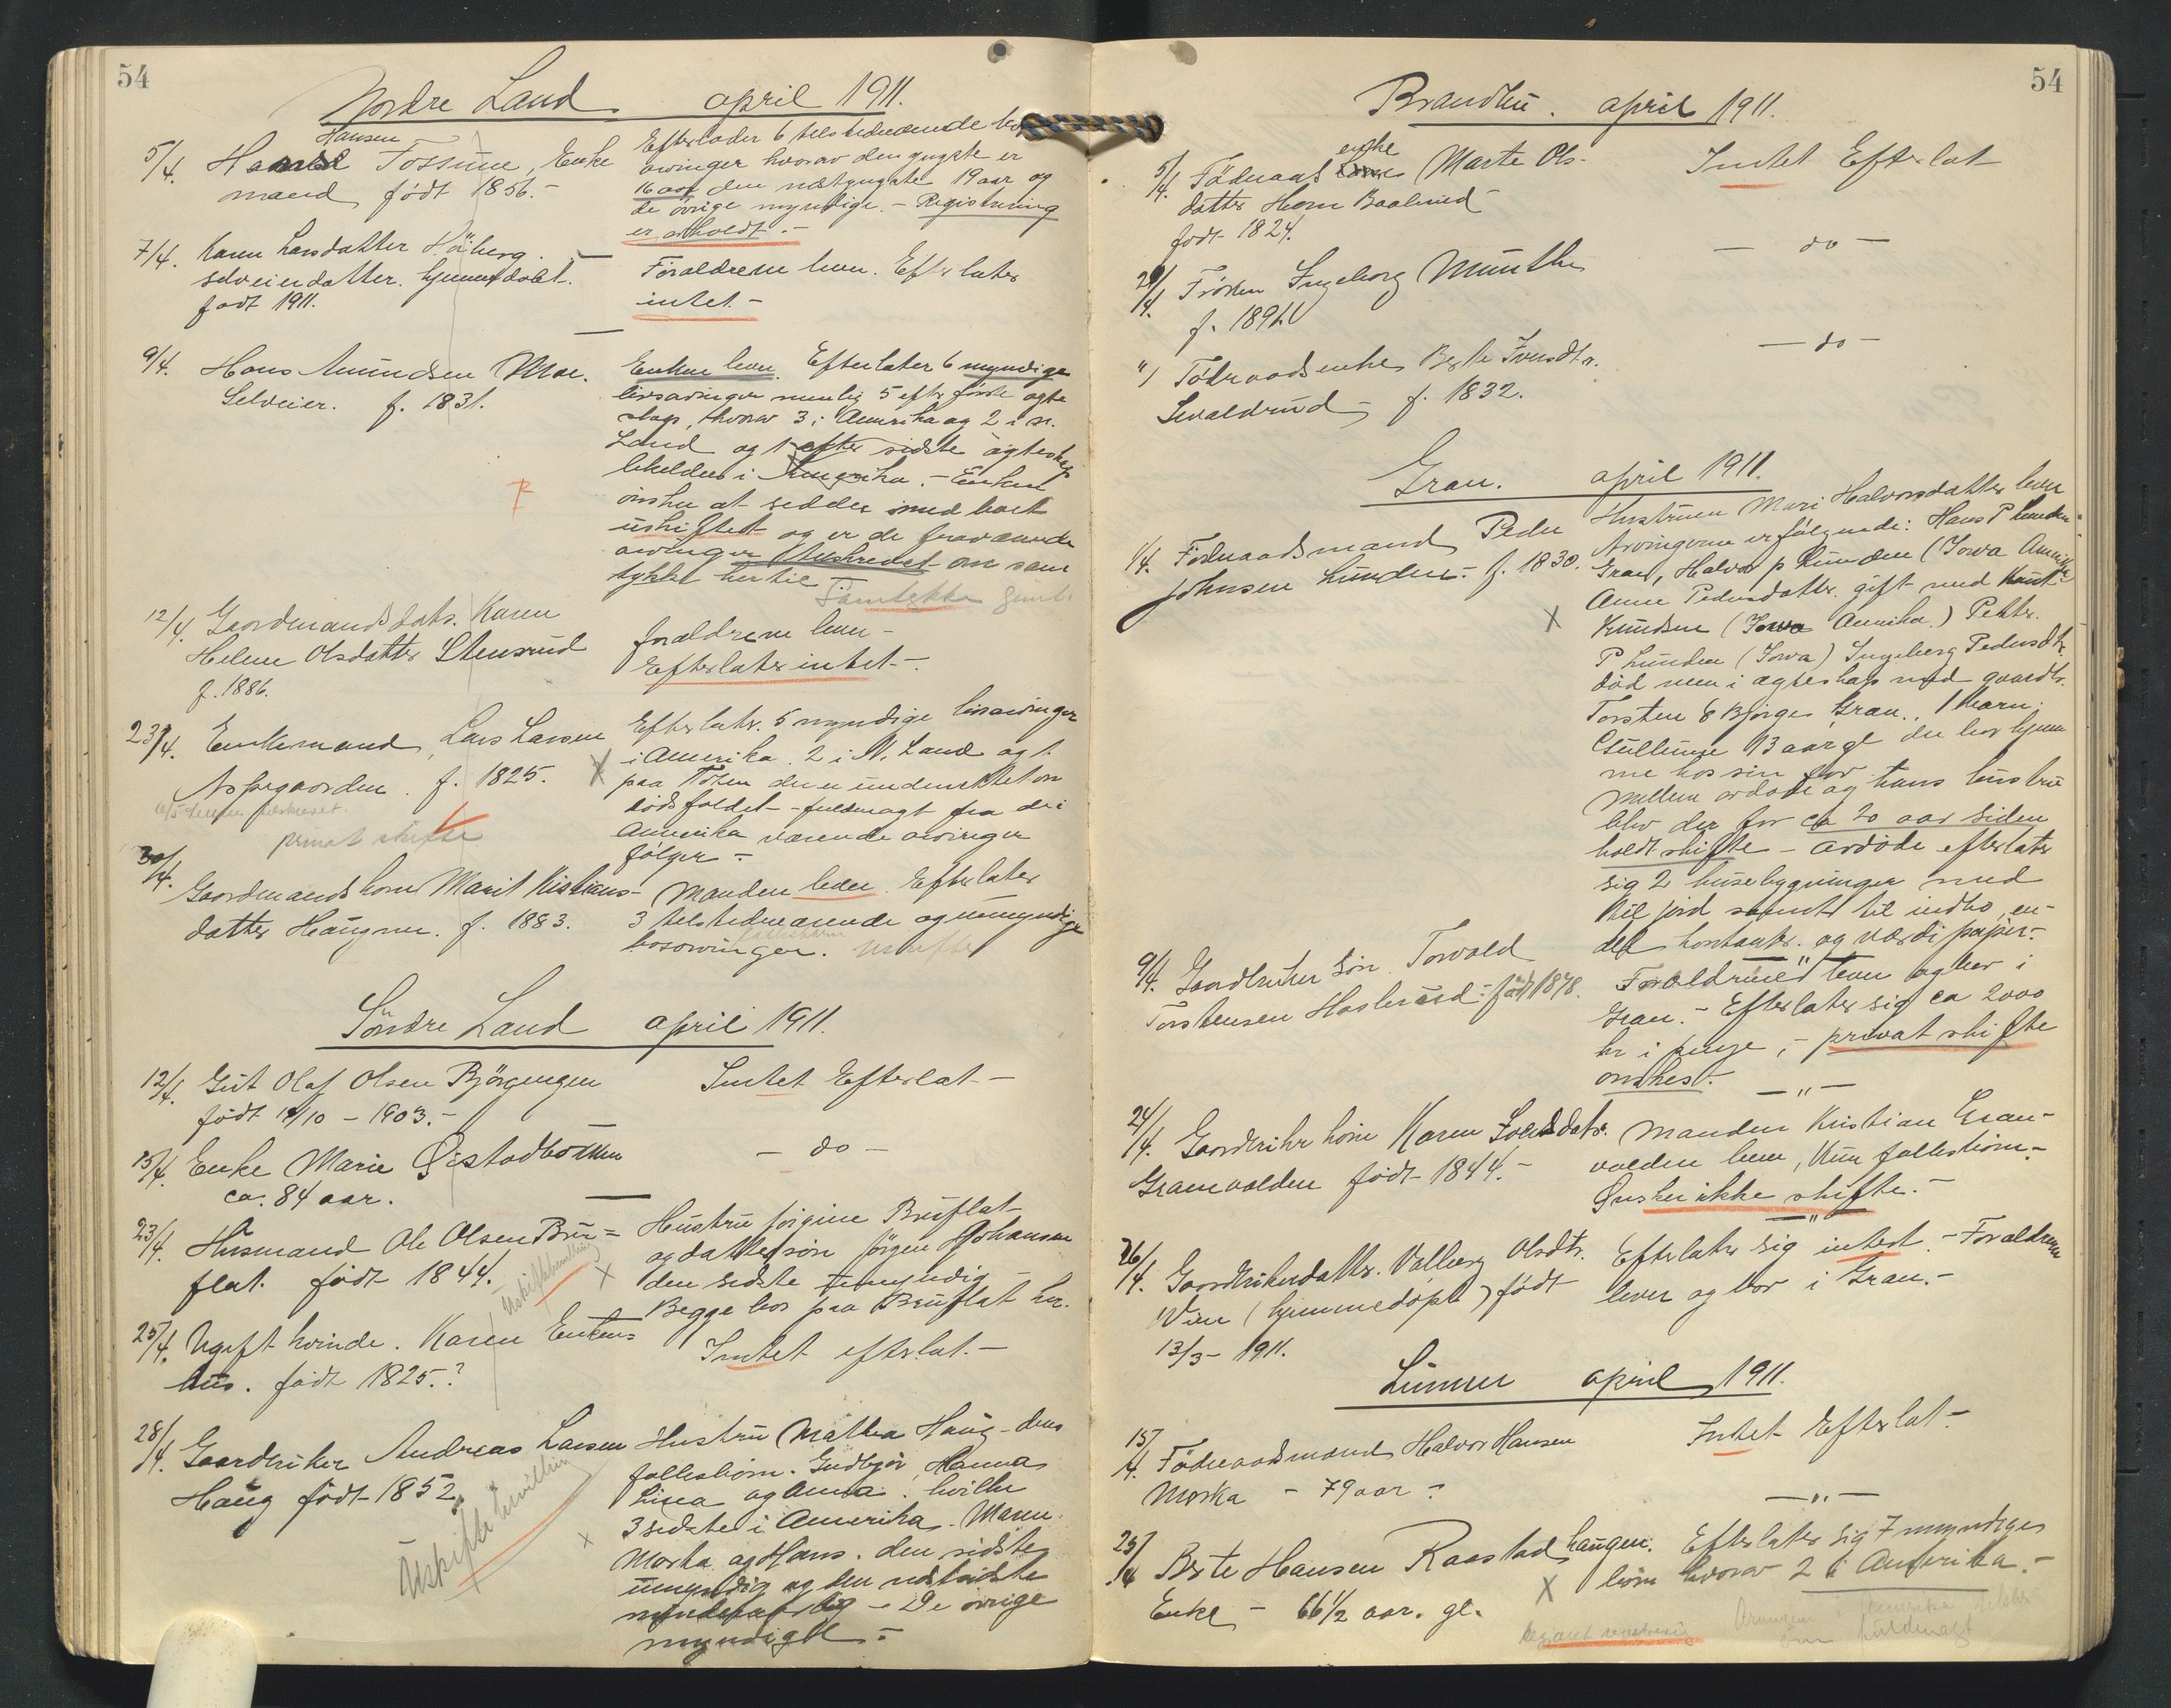 54
Nordre Land april 1911.
5/4. Hansen Tossune, Enke
mand født 1856.-
Efterlader 6 tilstedeværende
arvinger hvorav den yngste er
16 aar den næstyngste 19 aar og
de øvrige myndige. - Registrering
er avholdt. -
7/4. Karen Larsdatter Høiberg.
selveierdatter. hjemmedøbt.
født 1911.
Forældrene lever. Efterlater
intet -
9/4. Hans Amundsen Moe.
Selveier. f. 1831.
Enken lever. Efterlater 6 myndige
livsarvinger nemlig 5 efter første ægte
skap, hvorav 3 i Amerika og 2 i n.
Land og 1 efter sidste ægteskap
likeledes i Amerika. - Enken
ønsker at sidde i med boet
uskiftet og er de fraværende
arvinger tilskrevet om sam
tykke hertil
Samtykke
12/4. Gaardmandsdatr. Karen
Helene Olsdatter Stensrud
f. 1886.
forældrene lever -
Efterlater intet -.
23/4. Enkemand, Lars Larsen
Aspegaarden. f. 1825. X
privat skifte
Efterlater 5 myndige livsarvinger
i Amerika. 2 i N. Land og 1
paa Toten der er underrettet om
dødsfaldet - fuldmagt fra de i
Amerika værende arvinger
følger -
30/4. Gaardmandskone Marit Kistians-
datter Haugner. f. 1883.
Manden lever. Efterlater
3 tilstedeværende og umyndige
livsarvinger. Uskiftet
Søndre Land april 1911.
12/4. Gut Olaf Olsen Bjørgengen
født 14/10 - 1903. -
Intet Efterlat -
15/4. Enke Marie Øistadbakken
ca. 84 aar.
- do -
23/4. Husmand Ole Olsen Bru=
flat. født 1844. X
Hustru Jørgine Bruflat
og dattersøn Jørgen Johansen
den sidste umyndig -
Begge bor paa Bruflat her.
25/4. Ugift kvinde. Karen Enken=
hus. født 1825.?
Intet efterlat. -
28/4. Gaardbruker Andreas Larsen
Haug født 1852.
Uskiftebevilling
Hustru Mathea Haug - deres
fællesbørn. Gudbjør, Hanna
Lina og Anna. hvilke
3 sidste i Amerika - Maren.
Marta og Hans. den sidste
umyndig og den næstsidste
mindreaarig - De øvrige
myndige. -
54
Brandbu. april 1911.
5/4. Føderaads enke Marte Ols-
datter Horn Baalerud
født 1824.
Intet Efterlat
29/4. Frøken Ingeborg Münthe
f. 1894
- do -
"/ Føderaadsenke Berte Iversdtr.
Sevaldrud - f. 1832.
- do -
Gran. april 1911.
1/4. Føderaadsmand Peder
Johnsen Lunden. - f. 1830.
X
Hustruen Mari Halvorsdatter lever
Arvingerne er følgende: Hans P Lunden
Gran, Halvor P Lunden (Iowa Amerika
Anne Pedersdatter. gift med Knut
Knudsen (Iowa Amerika.) Petter.
P Lunden (Iowa) Ingeborg Pedersdtr.
død men i ægteskap med gaardbr.
Torsten E Bjørge Gran. 1 barn.
Gullunge 13 aar gl. der bor hjem
me hos sin far
Mellem avdøde og hans hustru
blev der for ca 20 aar siden
holdt skifte - avdøde efterlater
sig 2 husebygninger med
til jord samt til indbo, en-
del kontanter. og værdipapir. -
9/4. Gaardbruker søn. Torvald
Torstensen Haslerud. - født 1878.
Forældrene lever og bor i
Gran. - Efterlater sig ca 2000
kr i penge, - privat skifte
ønskes. -
- " -
24/4. Gaardbruker kone Karen Iversdatr.
Granvolden født 1844. -
Manden Kristian Gran-
volden lever, Kun fællesbørn. -
Ønsker ikke skifte. -
- " -
26/4. Gaardbrukerdatter. Valborg Olsdtr.
Wien (hjemmedøpt) født
13/3 - 1911.
Efterlater sig intet. - Forældrene
lever og bor i Gran. -
Lunner april 1911.
15/4. Føderaadsmand Halvor Hansen
Morka - 79 aar -
Intet Efterlat -
- " -
25/4 Berte Hansen Raastadhaugen.
Enke - 66 1/2 aar. gl.
X
Efterlater sig 7 myndige
børn hvorav 2 i Amerika. -
begjæret registrering
fuldmagt